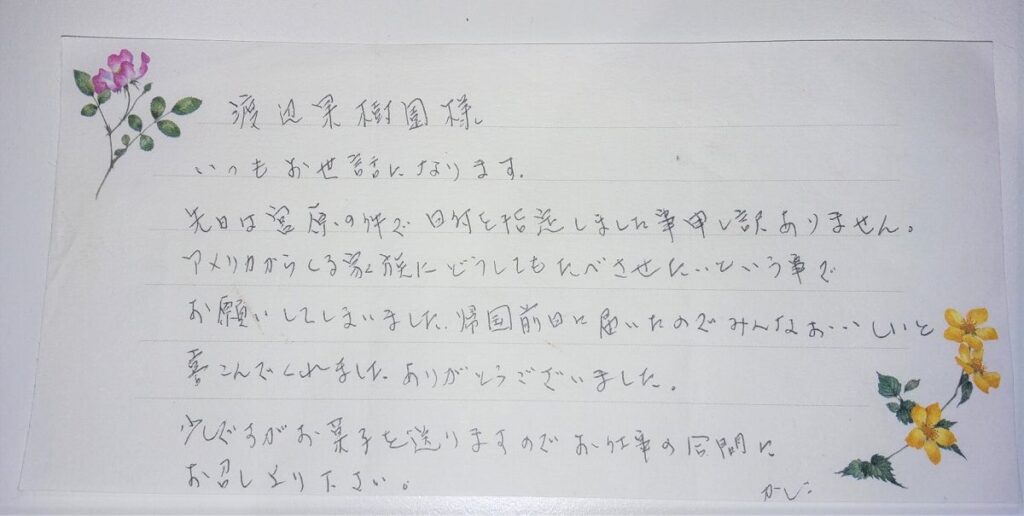 渡辺果樹園様
いつもお世話になります.
先日は宮原の件で日付を指定しました事申し訳ありません。
アメリカからくる家族にどうしてもたべさせたいという事で
お願いしてしまいました、帰国前日に届いたのでみんなおいしいと
喜こんでくれました ありがとうございました。
少しですがお菓子を送りますのでお仕事の合間に
お召し上り下さい。